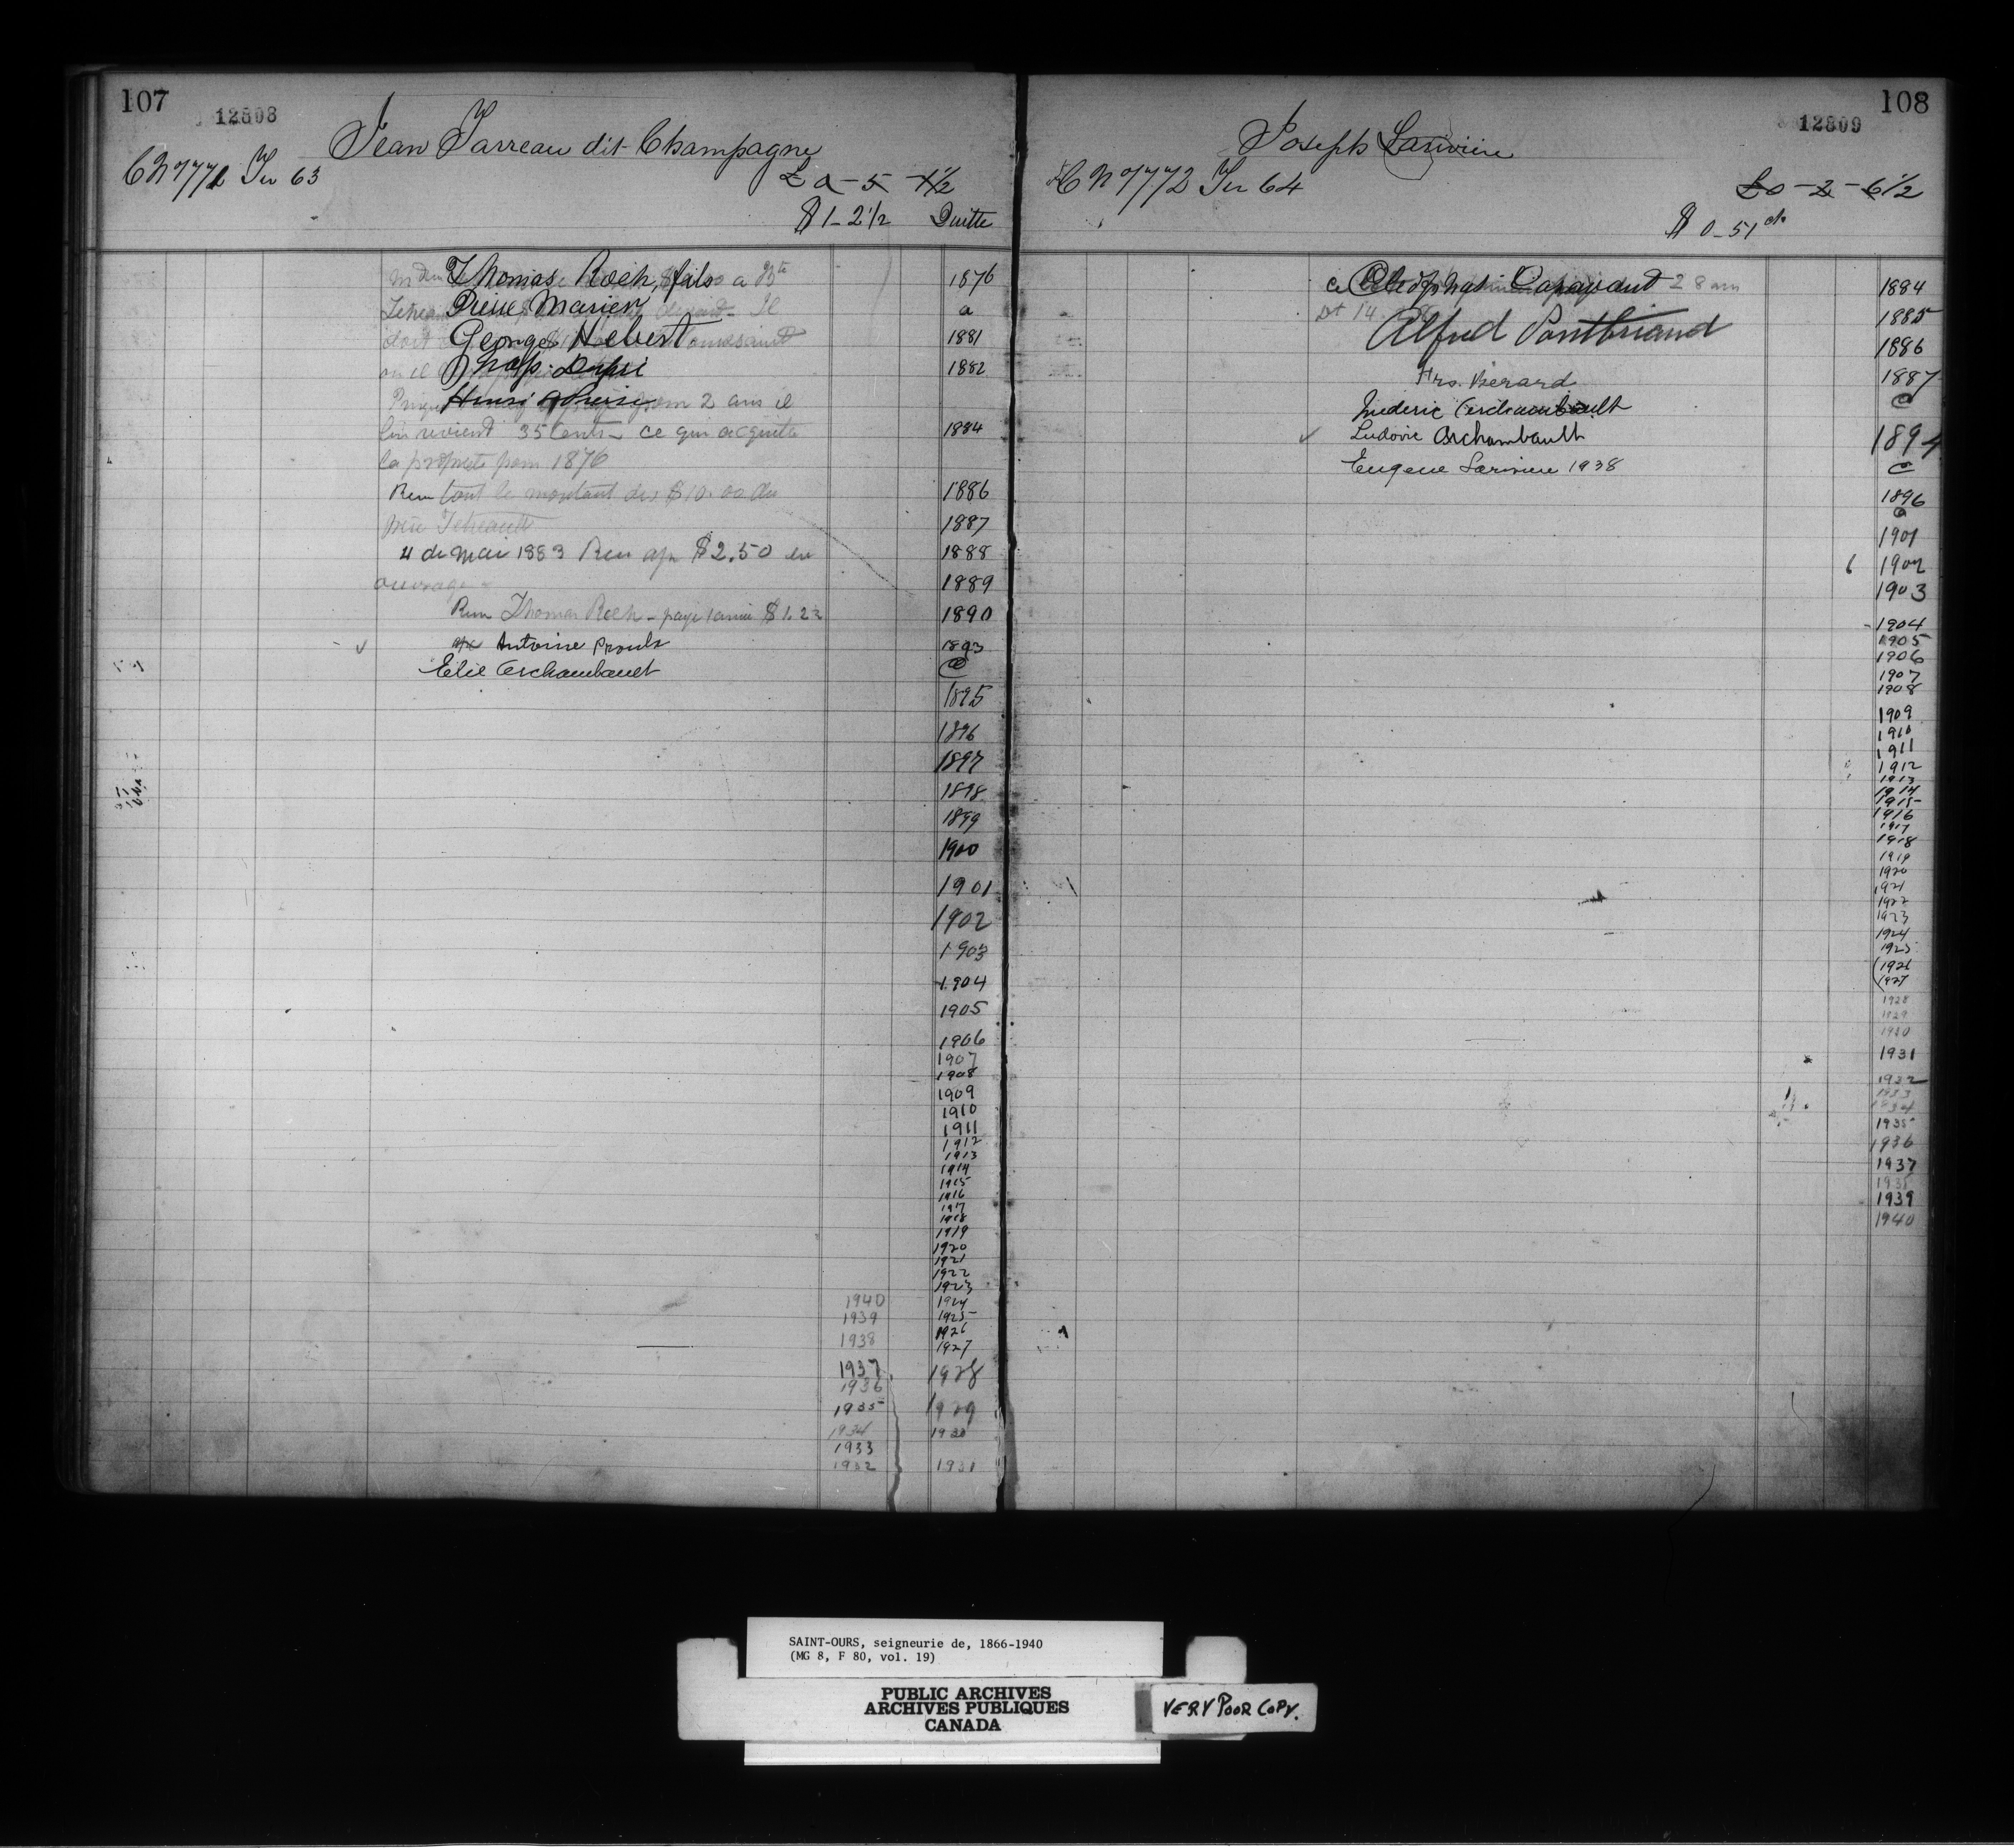 107
12808
Jean Tarreau dit Champagne
CN 777 Ter 63
£ 0-5-1½
$ 1-2½ Quitte
Thomas Roch, fils a Bte
Pierre Marier Il
doit George Hebert
Dupre
Henri pour 2 ans il
lui revient 35 Cents - ce qui acquitte
la propriete pour 1876
Recu tout le montant des $10.00 du
père Tetreault
4 de Mai 1883 Recu $2.50 en
ouvrage
Recu Thomas Roch - paye 1 année $1.22
Antoine Proulx
Elie Archambault
1876
a
1881
1882
1884
1886
1887
1888
1889
1890
1893
@
1895
1896
1897
1898
1899
1900
1901
1902
1903
1904
1905
1906
1907
1908
1909
1910
1911
1912
1913
1914
1915
1916
1917
1918
1919
1920
1921
1922
1923
1924
1925
1926
1927
1928
1929
1930
1931
1940
1939
1938
1937
1936
1935
1934
1933
1932
108
12809
Joseph Lariviere
CN 7772 Ter 64
£0-2-6½
$ 0-51 cts
Cleophas Capavant 28 ans
Alfred Pontbriand
Hrs. Berard
Frederic Archambault
Ludovic Archambault
Eugene Lariviere 1938
1884
1885
1886
1887
@
1894
@
1896
@
1901
6 1902
1903
1904
1905
1906
1907
1908
1909
1910
1911
1912
1913
1914
1915
1916
1917
1918
1919
1920
1921
1922
1923
1924
1925
1926
1927
1928
1929
1930
1931
1932
1933
1934
1935
1936
1937
1939
1940
SAINT-OURS, seigneurie de, 1866-1940
(MG 8, F 80, vol. 19)
PUBLIC ARCHIVES
ARCHIVES PUBLIQUES
CANADA
VERY POOR COPY.